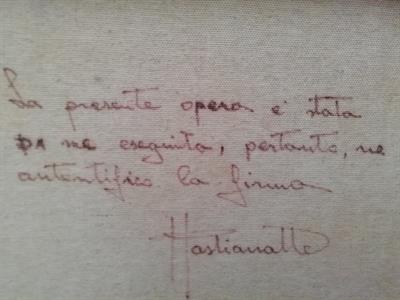 La presente opera è stata
DA me eseguita, pertanto, ne
autentifico la firma